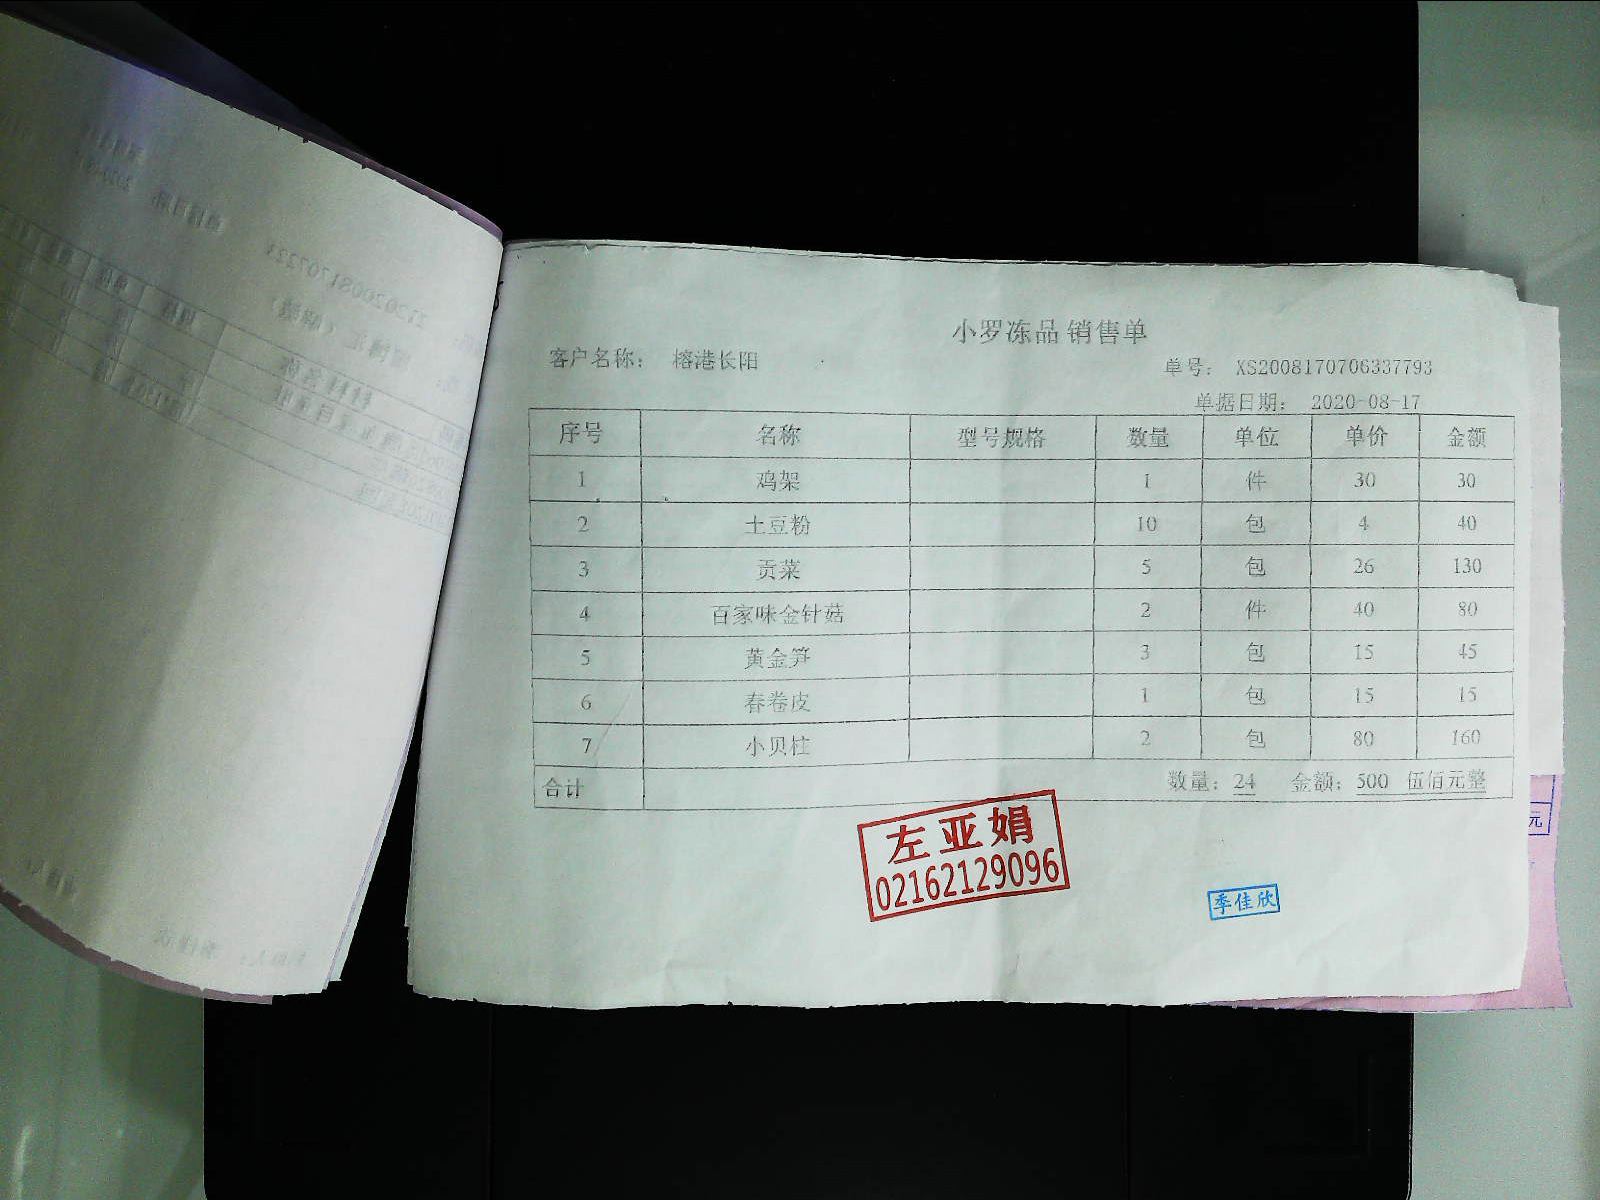 小罗冻品 销售单
客户名称： 榕港长阳 单号： XS2008170706337793
单据日期： 2020-08-17
序号 名称 型号规格 数量 单位 单价 金额
1 鸡架 1 件 30 30
2 土豆粉 10 包 4 40
3 贡菜 5 包 26 130
4 百家味金针菇 2 件 40 80
5 黄金笋 3 包 15 45
6 春卷皮 1 包 15 15
7 小贝柱 2 包 80 160
合计 数量：24 金额：500 伍佰元整
元
左亚娟
02162129096
季佳欣